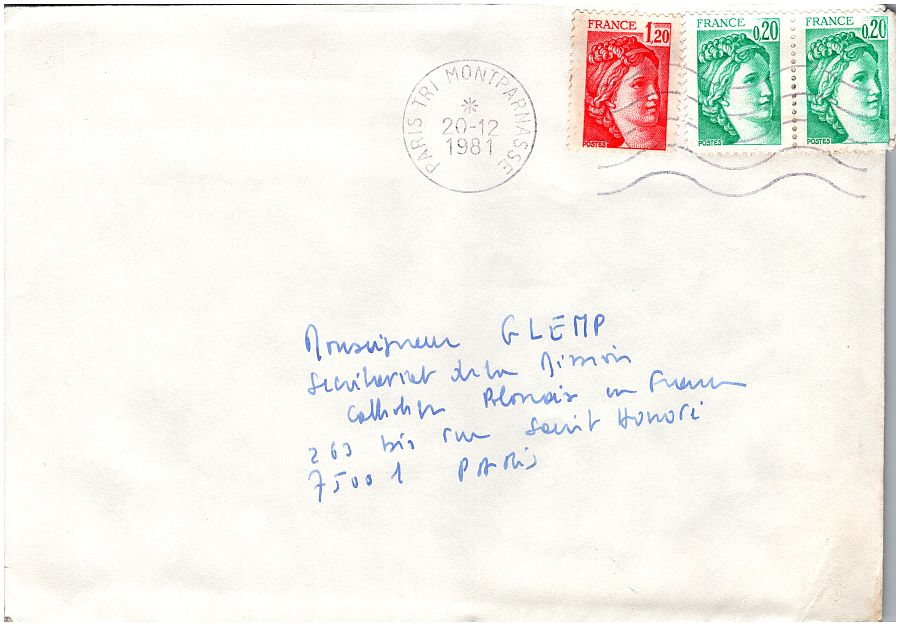 FRANCE 1,20 POSTES
FRANCE 0,20 POSTES
FRANCE 0,20 POSTES
PARIS TRI MONTPARNASSE
20-12
1981
Monseigneur GLEMP
Secrétariat de la Mission
Catholique Polonais en France
263 bis rue Saint Honoré
75001 PARIS